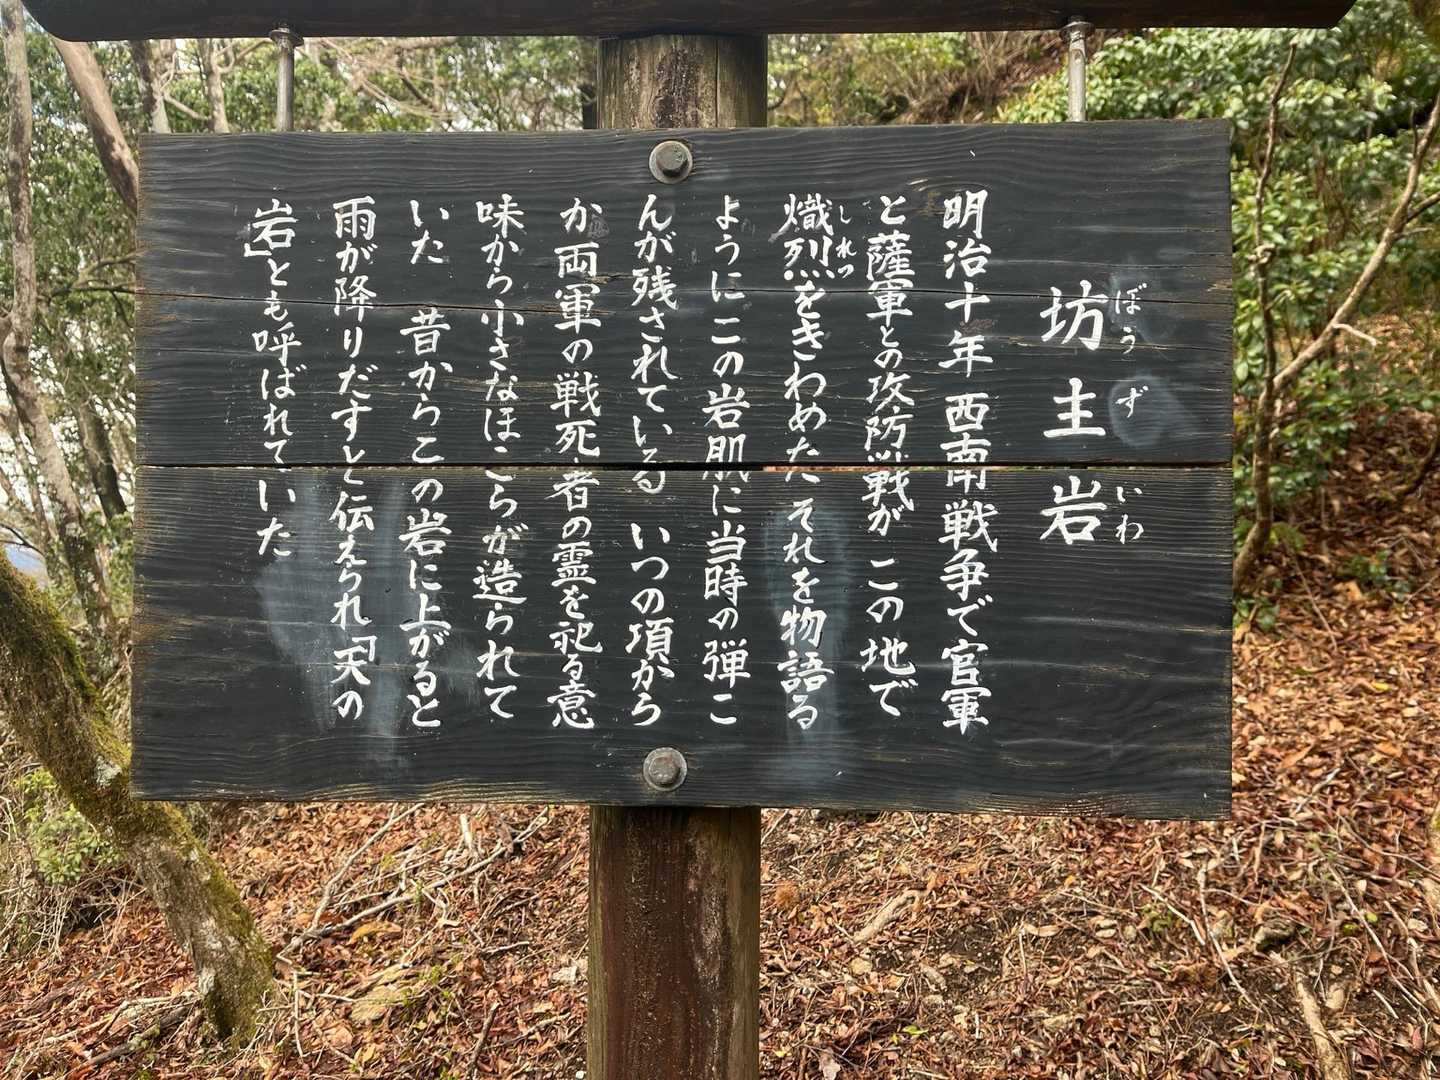 坊主岩
ぼうずいわ
明治十年 西南戦争で官軍
と薩軍との攻防戦が この地で
熾烈をきわめた それを物語る
しれつ
ようにこの岩肌に当時の弾こ
んが残されている いつの頃から
か両軍の戦死者の霊を祀る意
味から小さなほこらが造られて
いた 昔からこの岩に上がると
雨が降りだすと伝えられ「天の
岩」とも呼ばれていた